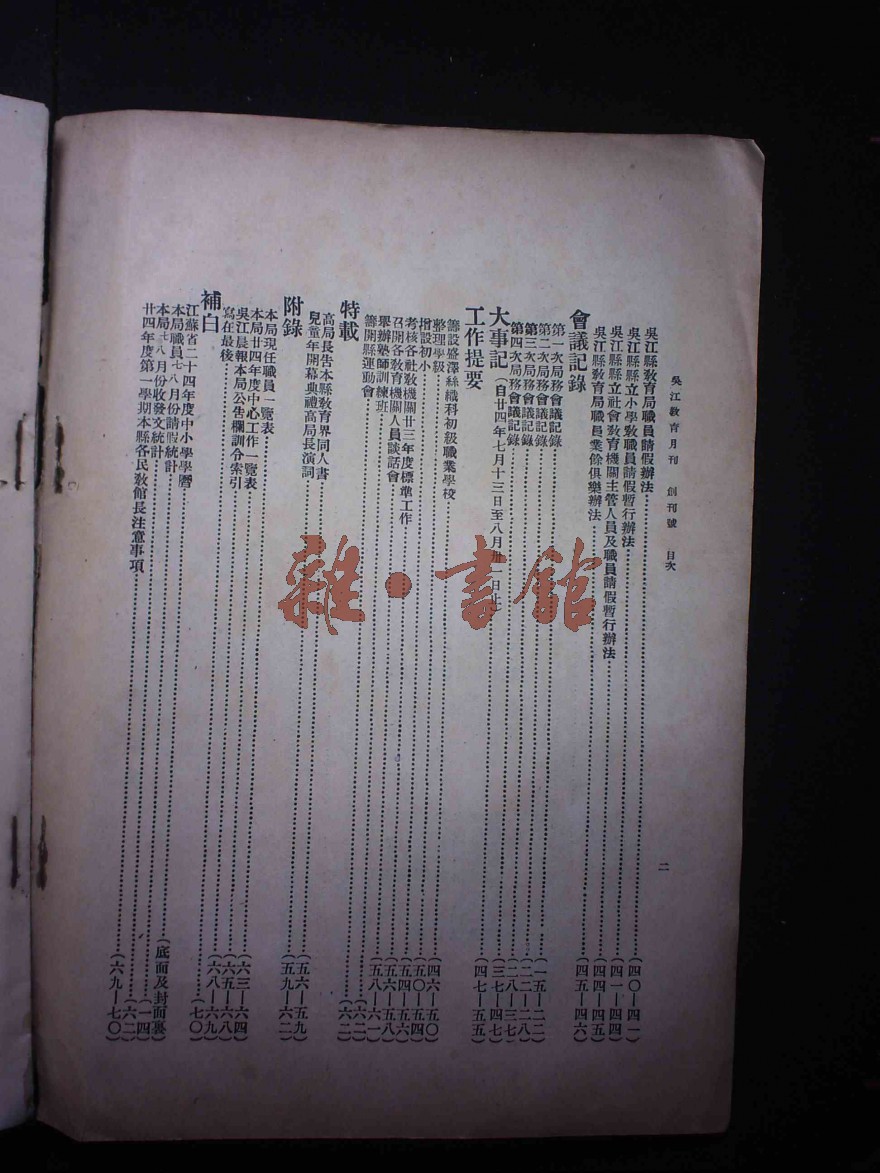 吳江教育月刊 創刊號 目次
二
吳江縣教育局職員請假辦法……(四〇—四一)
吳江縣縣立小學教職員請假暫行辦法……(四一—四四)
吳江縣縣立社會教育機關主管人員及職員請假暫行辦法……(四四—四五)
吳江縣教育局職員業餘俱樂辦法……(四五—四六)
會議記錄
第一次局務會議記錄……(一五—二二)
第二次局務會議記錄……(二二—二八)
第三次局務會議記錄……(二八—三七)
第四次局務會議記錄……(三七—四七)
大事記(自廿四年七月十三日至八月卅一日止)……(四七—五五)
工作提要
籌設盛澤絲織科初級職業學校……(四六—五〇)
整理學級……(五〇—五四)
增設初小……(五四—五六)
考核各社教機關廿三年度標準工作……(五六—五八)
召開各教育機關人員談話會……(五八—六一)
舉辦塾師訓練班……(六二)
籌開縣運動會……(六二)
特載
高局長告本縣教育界同人書……(五六—五九)
兒童年開幕典禮高局長演詞……(五九—六二)
附錄
本局現任職員一覽表……(六三—六四)
本局廿四年度中心工作一覽表……(六五—六八)
吳江晨報本局公告欄訓令索引……(六八—六九)
寫在最後……(七〇)
補白
江蘇省二十四年度中小學學曆……(底面及封面裏)
本局職員七八月份請假統計……(一四)
本局七八月份收發文統計……(六二)
廿四年度第一學期本縣各民教館長注意事項……(六九—七〇)
雜·書館